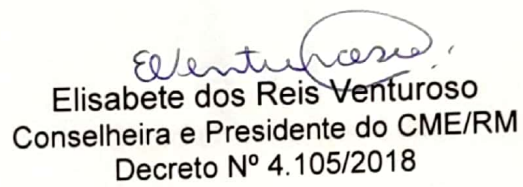 EVenturoso.
Elisabete dos Reis Venturoso
Conselheira e Presidente do CME/RM
Decreto Nº 4.105/2018